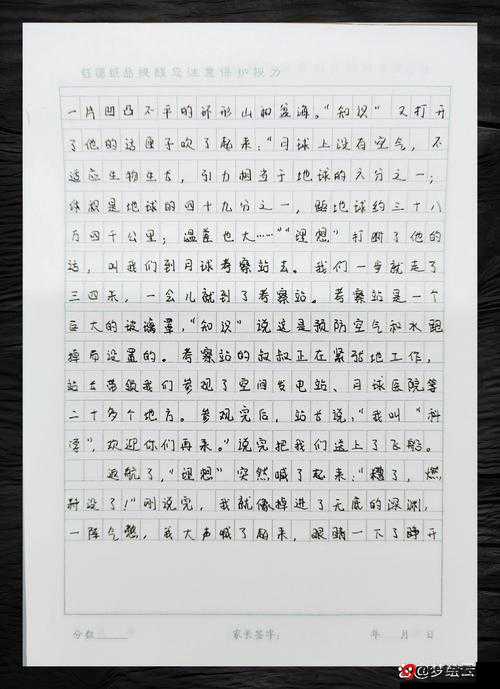 钰疆纸品提醒您注意保护视力
一片凹凸不平的环形山和海。“知识”又打开
了他的话匣子吹了起来:“月球上没有空气,不
适应生物生存,引力相当于地球的六分之一;
体积是地球的四十九分之一,距地球约三十八
万四千公里;温差也大……”“理想”打断了他的
话,叫我们到月球考察站去。我们一步就走了
三四米,一会儿就到了考察站。考察站是一个
巨大的玻璃罩,“知识”说这是预防空气和水跑
掉而设置的。考察站的叔叔正在紧张地工作,
站长带领我们参观了空间发电站、月球医院等
二十多个地方。参观完后,站长说:“我叫“科
学”,欢迎你们再来。”说完把我们送上了飞船。
返航了,“理想”突然喊了起来:“糟了,燃
料没了!”刚说完,我就像掉进了无底的深渊,
一阵气憋,我大声喊了起来,眼睛一下了睁开
分数
家长签字:
年 月 日
@梦绘云